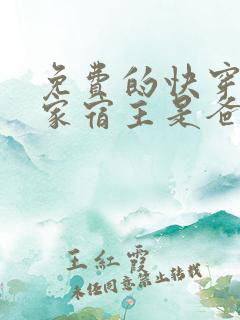 免费的快穿
家宿主是爸
王紅霞
未经同意禁止转载